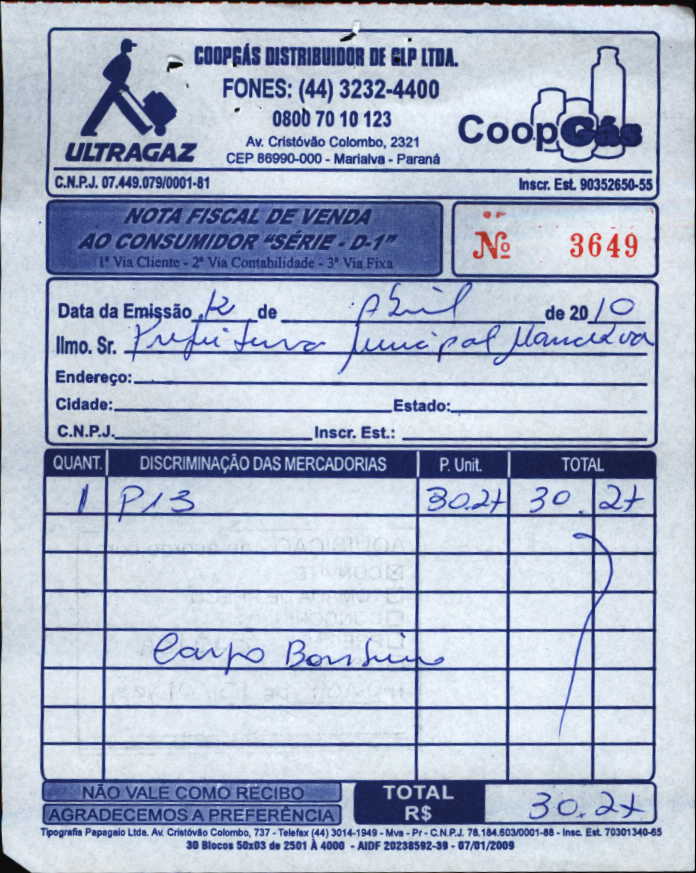 COOPGÁS DISTRIBUIDOR DE GLP LTDA.
FONES: (44) 3232-4400
0800 70 10 123
Av. Cristóvão Colombo, 2321
CEP 86990-000 - Marialva - Paraná
ULTRAGAZ
CoopGás
C.N.P.J. 07.449.079/0001-81 Inscr. Est. 90352650-55
NOTA FISCAL DE VENDA
AO CONSUMIDOR "SÉRIE - D-1"
1ª Via Cliente - 2ª Via Contabilidade - 3ª Via Fixa
Nº 3649
Data da Emissão 12 de Abril de 2010
Ilmo. Sr. Prefeitura Municipal
Endereço:
Cidade: Estado:
C.N.P.J. Inscr. Est.:
QUANT. DISCRIMINAÇÃO DAS MERCADORIAS P. Unit. TOTAL
1 P13 30.27 30.27
NÃO VALE COMO RECIBO
AGRADECEMOS A PREFERÊNCIA
TOTAL
R$ 30.27
Tipografia Papagaio Ltda. Av. Cristóvão Colombo, 737 - Telefax (44) 3014-1949 - Mva - Pr - C.N.P.J. 78.184.603/0001-88 - Insc. Est. 70301340-65
30 Blocos 50x03 de 2501 À 4000 - AIDF 20238592-39 - 07/01/2009